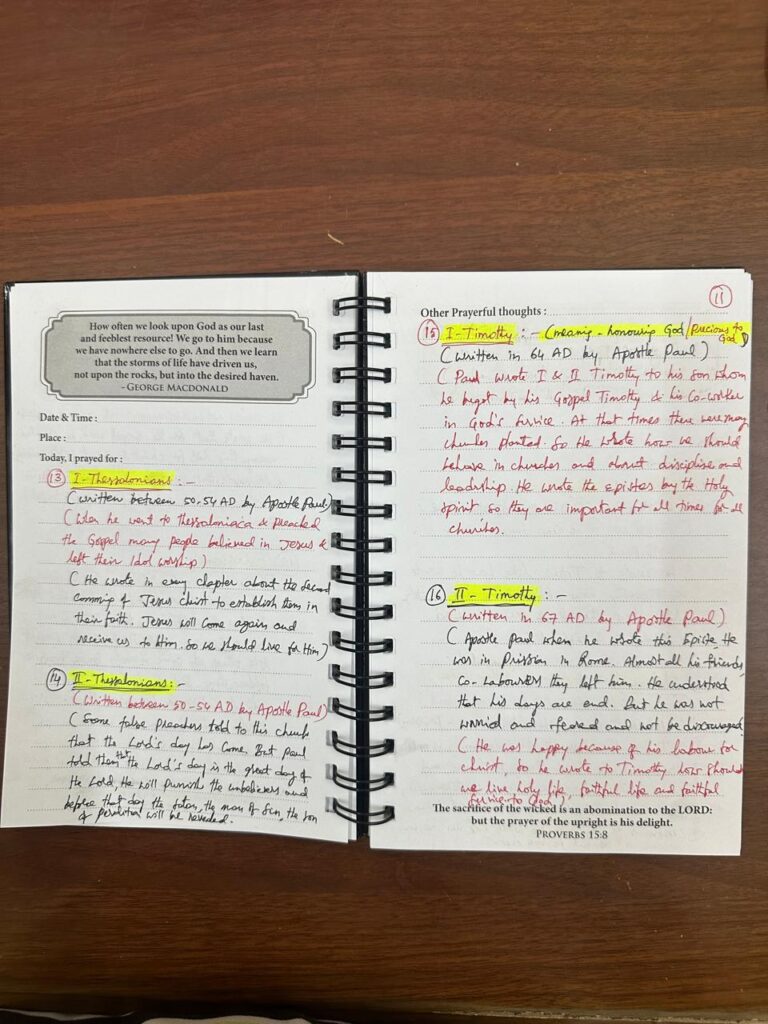 How often we look upon God as our last
and feeblest resource! We go to him because
we have nowhere else to go. And then we learn
that the storms of life have driven us,
not upon the rocks, but into the desired haven.
- GEORGE MACDONALD
Date & Time :
Place :
Today, I prayed for :
13 I - Thessalonians : -
(written between 50-54 AD by Apostle Paul)
(When he went to Thessaloniaca & preached
the Gospel many people believed in Jesus &
left their Idol worship)
(He wrote in every chapter about the Second
comming of Jesus christ to establish them in
their faith. Jesus will come again and
receive us to Him. So we should live for Him)
14 II - Thessalonians : -
(written between 50-54 AD by Apostle Paul)
(Some false preachers told to this church
that the Lord's day has come. But paul
told them that the Lord's day is the great day of
the Lord, He will punish the unbelievers and
before that day the the man of Sin, the son
of perdition will be revealed.
11
Other Prayerful thoughts :
15 I - Timothy : - (meaning - honouring God / Precious to
God)
(written in 64 AD by Apostle Paul)
(Paul wrote I & II Timothy to his son whom
he begot by his Gospel Timothy & his co-worker
in God's service. At that times there were many
churches planted. So He wrote how we should
behave in churches and about discipline and
leadership. He wrote the epistles by the Holy
spirit so they are important for all times for all
churches.
16 II - Timothy : -
(written in 67 AD by Apostle Paul)
(Apostle Paul when he wrote this Epistle He
was in Prission in Rome. Almost all his friends,
Co-Labourers they left him. He understood
that his days are end. But he was not
worried and feared and not be discouraged.
(He was happy because of his labour for
christ, so he wrote to Timothy how should
we live holy life, faithful life and faithful
service to God).
The sacrifice of the wicked is an abomination to the LORD:
but the prayer of the upright is his delight.
PROVERBS 15:8